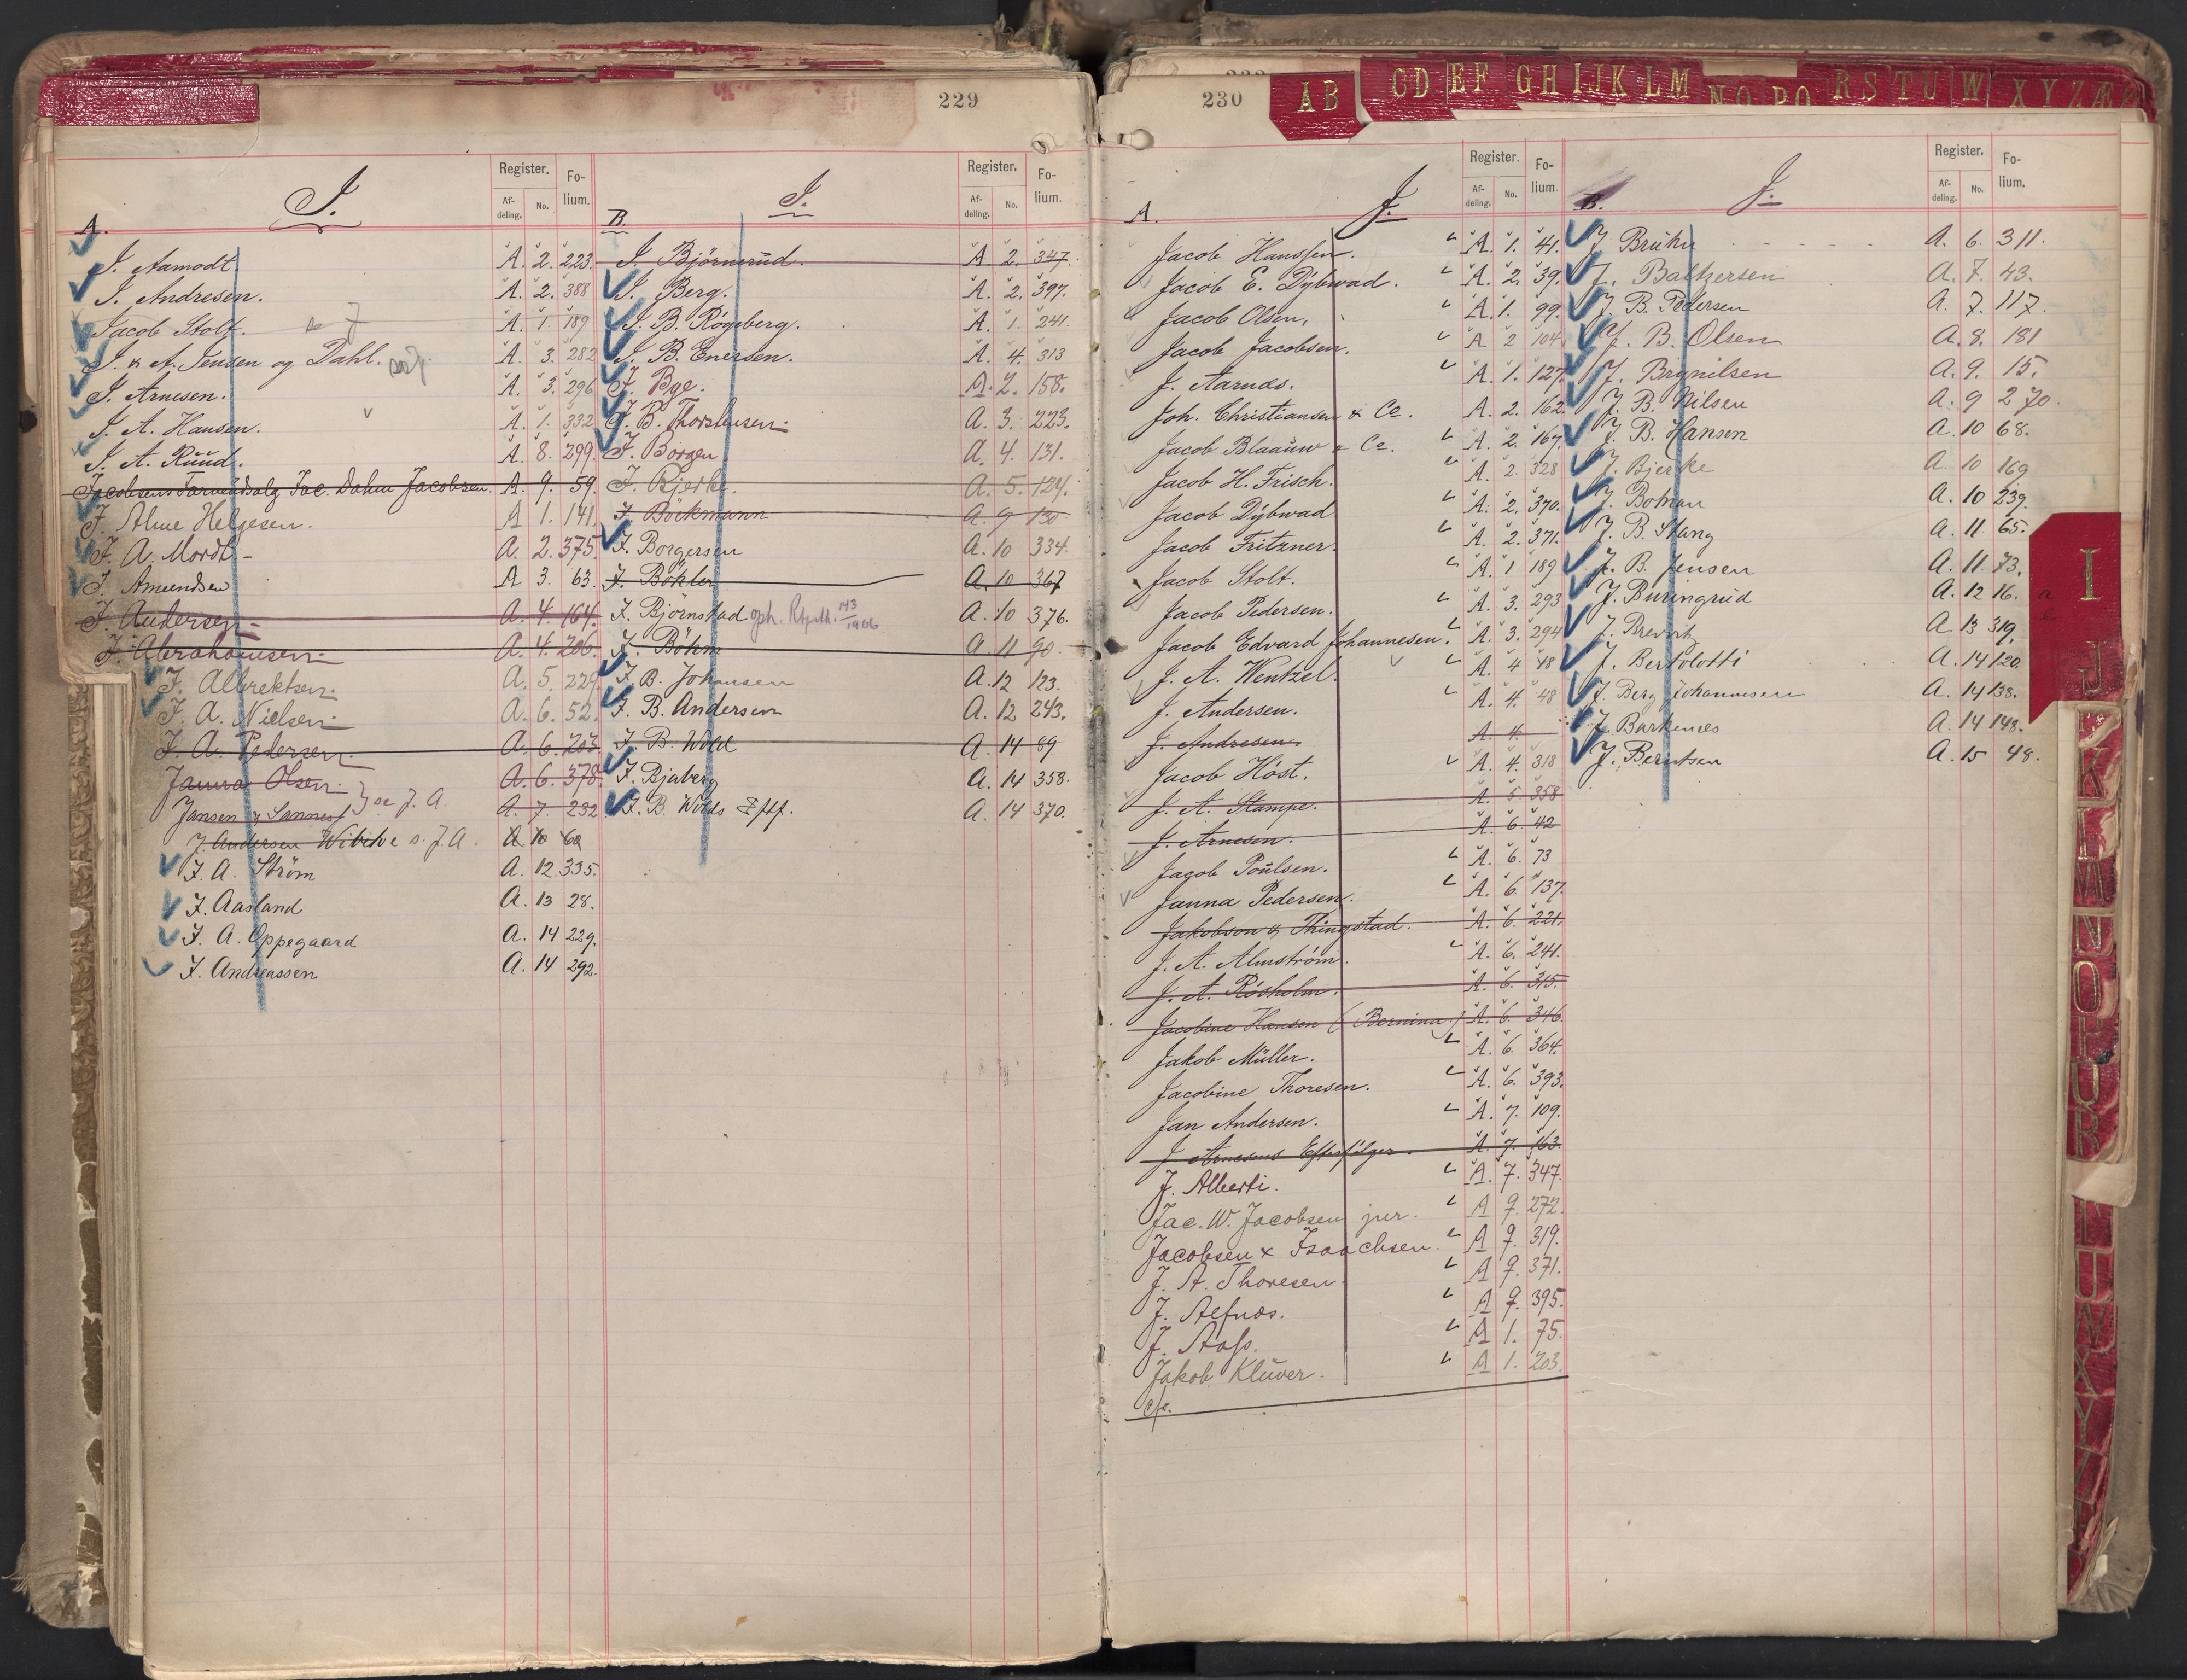 229
I.
Register. Folium.
Afdeling. No.
A.
I. Aamodt A. 2. 223.
I. Andresen. A. 2. 388
Jacob Stolt. se J A. 1. 189
I. & A. Jensen og Dahl. A. 3. 282
I. Arnesen. A. 3. 296
I. A. Hansen. A. 1. 332
I. A. Ruud. A. 8. 299.
Jacobsens Farveudsalg Jac. Dahm Jacobsen. A. 9. 59.
I. Alme Helgesen. A 1. 141
I. A. Mordt A. 2. 375
I. Amundsen A 3. 63.
I. Andersen A. 4. 164.
I. Abrahamsen A. 4. 206.
I. Albrektsen A. 5. 229
I. A. Nielsen A. 6. 52.
I. A. Pedersen A. 6. 203.
Janna Olsen A. 6. 378.
Jansen & Sannes se J. A. A. 7. 232
J. Andersen Wibike s. J. A. A 10 60
I. A. Ström A. 12 335.
I. Aasland A. 13 28.
I. A. Oppegaard A. 14 229.
I. Andreassen A. 14 292.
I.
Register. Folium.
Afdeling. No.
B.
I. Björnerud. A 2. 347.
I. Berg. A. 2. 397.
I. B. Rögeberg. A. 1. 241.
I. B. Enersen. A. 4. 313
I. Bye. A. 2. 158.
I. B. Thorstensen. A. 3. 223.
I. Borgen A. 4. 131.
I. Bjerke. A. 5. 124.
I. Böckmann A. 9 130
I. Borgersen A. 10 334.
I. Böhler A. 10 367
I. Björnstad oph. 143/1906 A. 10 376.
I. Böhm A. 11 90
I. B. Johansen A. 12 123.
I. B. Andersen A. 12 243.
I. B. Wold A. 14 89
I. Bjaberg A. 14 358.
I. B. Wolds Eftf. A. 14 370.
230
AB CD EF GH IJK LM NO PQ RS TU W XYZÆØ
J.
Register. Folium.
Afdeling. No.
A.
Jacob Hanssen. A. 1. 41.
Jacob E. Dybwad. A. 2. 39.
Jacob Olsen. A. 1. 99.
Jacob Jacobsen. A 2 104.
J. Aarnæs. A. 1. 127.
Joh. Christiansen & Co. A. 2. 162.
Jacob Blaauw & Co. A. 2. 167.
Jacob H. Frisch. A. 2. 328
Jacob Dybwad A. 2. 370.
Jacob Fritzner. A. 2. 371.
Jacob Stolt. A. 1 189
Jacob Pedersen. A. 3. 293
Jacob Edvard Johannesen. A. 3. 294
J. A. Wentzel. A. 4 48
J. Andersen. A. 4. 48
J. Andresen. A. 4.
Jacob Höst. A. 4. 318
J. A. Stampe. A. 5 358
J. Arnesen. A. 6. 42
Jacob Poulsen. A. 6. 73
Janna Pedersen. A. 6. 137.
Jakobson & Thingstad. A. 6. 221.
J. A. Almström. A. 6. 241.
J. A. Rösholm. A. 6. 315.
Jacobine Hansen (Bernina) A. 6. 346.
Jakob Müller. A. 6. 364.
Jacobine Thoresen. A. 6. 393.
Jan Andersen. A. 7. 109.
J. Arnesens Efterfölger. A. 7. 163.
J. Alberti. A. 7. 347.
Jac. W. Jacobsen jur. A 9. 272.
Jacobsen & Isaachsen. A 9. 319.
J. A. Thoresen. A 9. 371.
J. Alfnæs. A 9. 395.
J. Aass. A 1. 75.
Jakob Klüver. A 1. 203.
J.
Register. Folium.
Afdeling. No.
B.
J. Bruhn A. 6. 311.
J. Baltzersen A. 7. 43.
J. B. Pedersen A. 7. 117.
J. B. Olsen A. 8. 181
J. Brynilsen A. 9. 15.
J. B. Nilsen A. 9 270.
J. B. Hansen A. 10 68.
J. Bjerke A 10 169
J. Boman A. 10 239.
J. B. Stang A. 11 65.
J. B. Jensen A. 11. 73.
J. Buringrud A. 12 16.
J. Brevitz A 13 319.
J. Bertolotti A. 14 120
J. Berg Johannesen A. 14 138.
J. Barkenæs A. 14 148.
J. Berntsen A. 15 48.
I
J